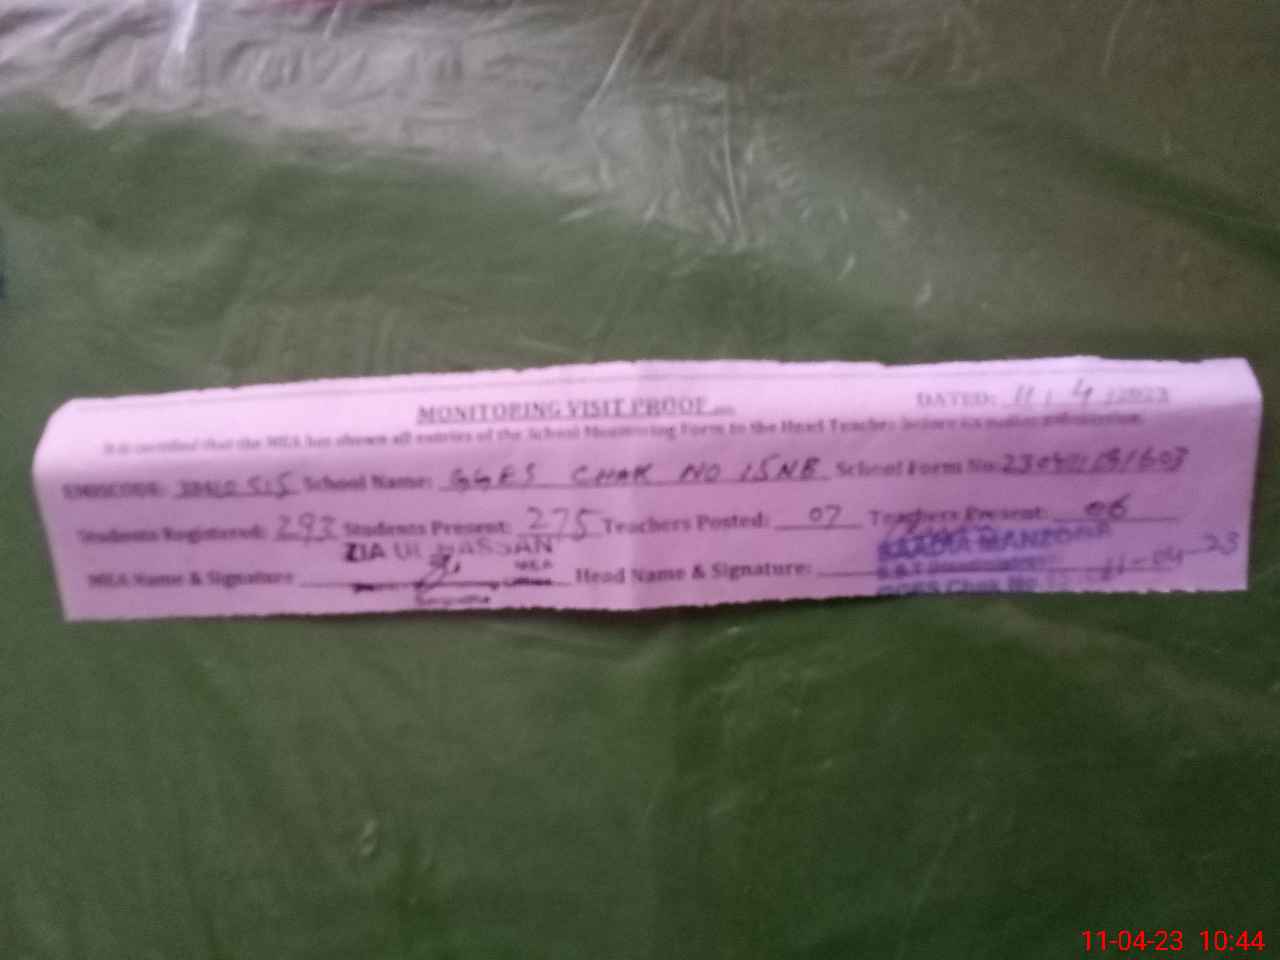 MONITORING VISIT PROOF
DATED: 11 / 4 / 2023
It is certified that the MEA has shown all entries of the School Monitoring Form to the Head Teacher before its
EMISCODE: School Name: GGES CHAK NO 15NB School Form No:
Students Registered: 293 Students Present: 275 Teachers Posted: 07 Teachers Present: 06
ZIA UL HASSAN
MEA
MEA Name & Signature Head Name & Signature:
SAADIA MANZOOR
11-04-23
GGES Chak No
11-04-23 10:44